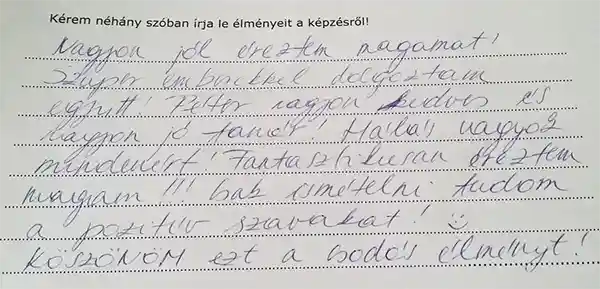 Kérem néhány szóban írja le élményeit a képzésről!
Nagyon jól éreztem magamat!
Szuper emberekkel dolgoztam
együtt! Péter nagyon kedves és
nagyon jó tanár! Hálás vagyok
mindenért! Fantasztikusan éreztem
magam!!! Csak ismételni tudom
a pozitív szavakat! ☺
KÖSZÖNÖM ezt a csodás élményt!